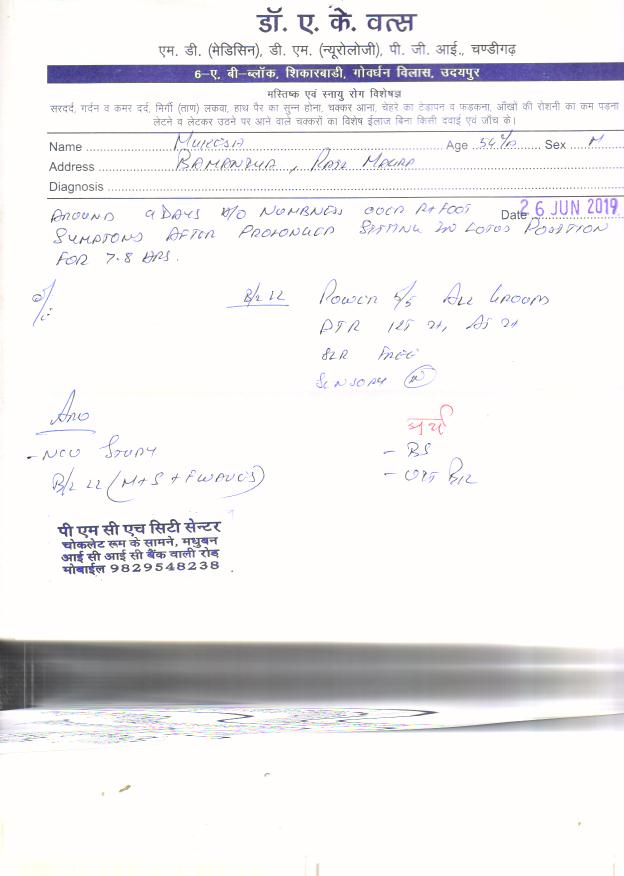 डॉ. ए. के. वत्स
एम. डी. (मेडिसिन), डी. एम. (न्यूरोलोजी), पी. जी. आई., चण्डीगढ़
6-ए, बी-ब्लॉक, शिकारबाडी, गोवर्धन विलास, उदयपुर
मस्तिष्क एवं स्नायु रोग विशेषज्ञ
सरदर्द, गर्दन व कमर दर्द, मिर्गी (ताण) लकवा, हाथ पैर का सुन्न होना, चक्कर आना, चेहरे का टेडापन व फड़कना, आँखों की रोशनी का कम पड़ना
लेटने व लेटकर उठने पर आने वाले चक्करों का विशेष ईलाज बिना किसी दवाई एवं जाँच के।
Name MUKESH Age 54 Sex M
Address
Diagnosis
AROUND 9 DAYS H/O NUMBNESS OVER RT FOOT Date 26 JUN 2019
SYMPTOMS AFTER PROLONGED SITTING IN LOTUS POSITION
FOR 7-8 HRS.
O/E B/L LL POWER 5/5 ALL GROUPS
DTR
SLR FREE
SENSORY (N)
Adv
- NCV STUDY - BS
B/L LL (M+S+FWAVES) - VIT B12
पी एम सी एच सिटी सेन्टर
चोकलेट रूम के सामने, मधुबन
आई सी आई सी बैंक वाली रोड
मोबाईल 9829548238